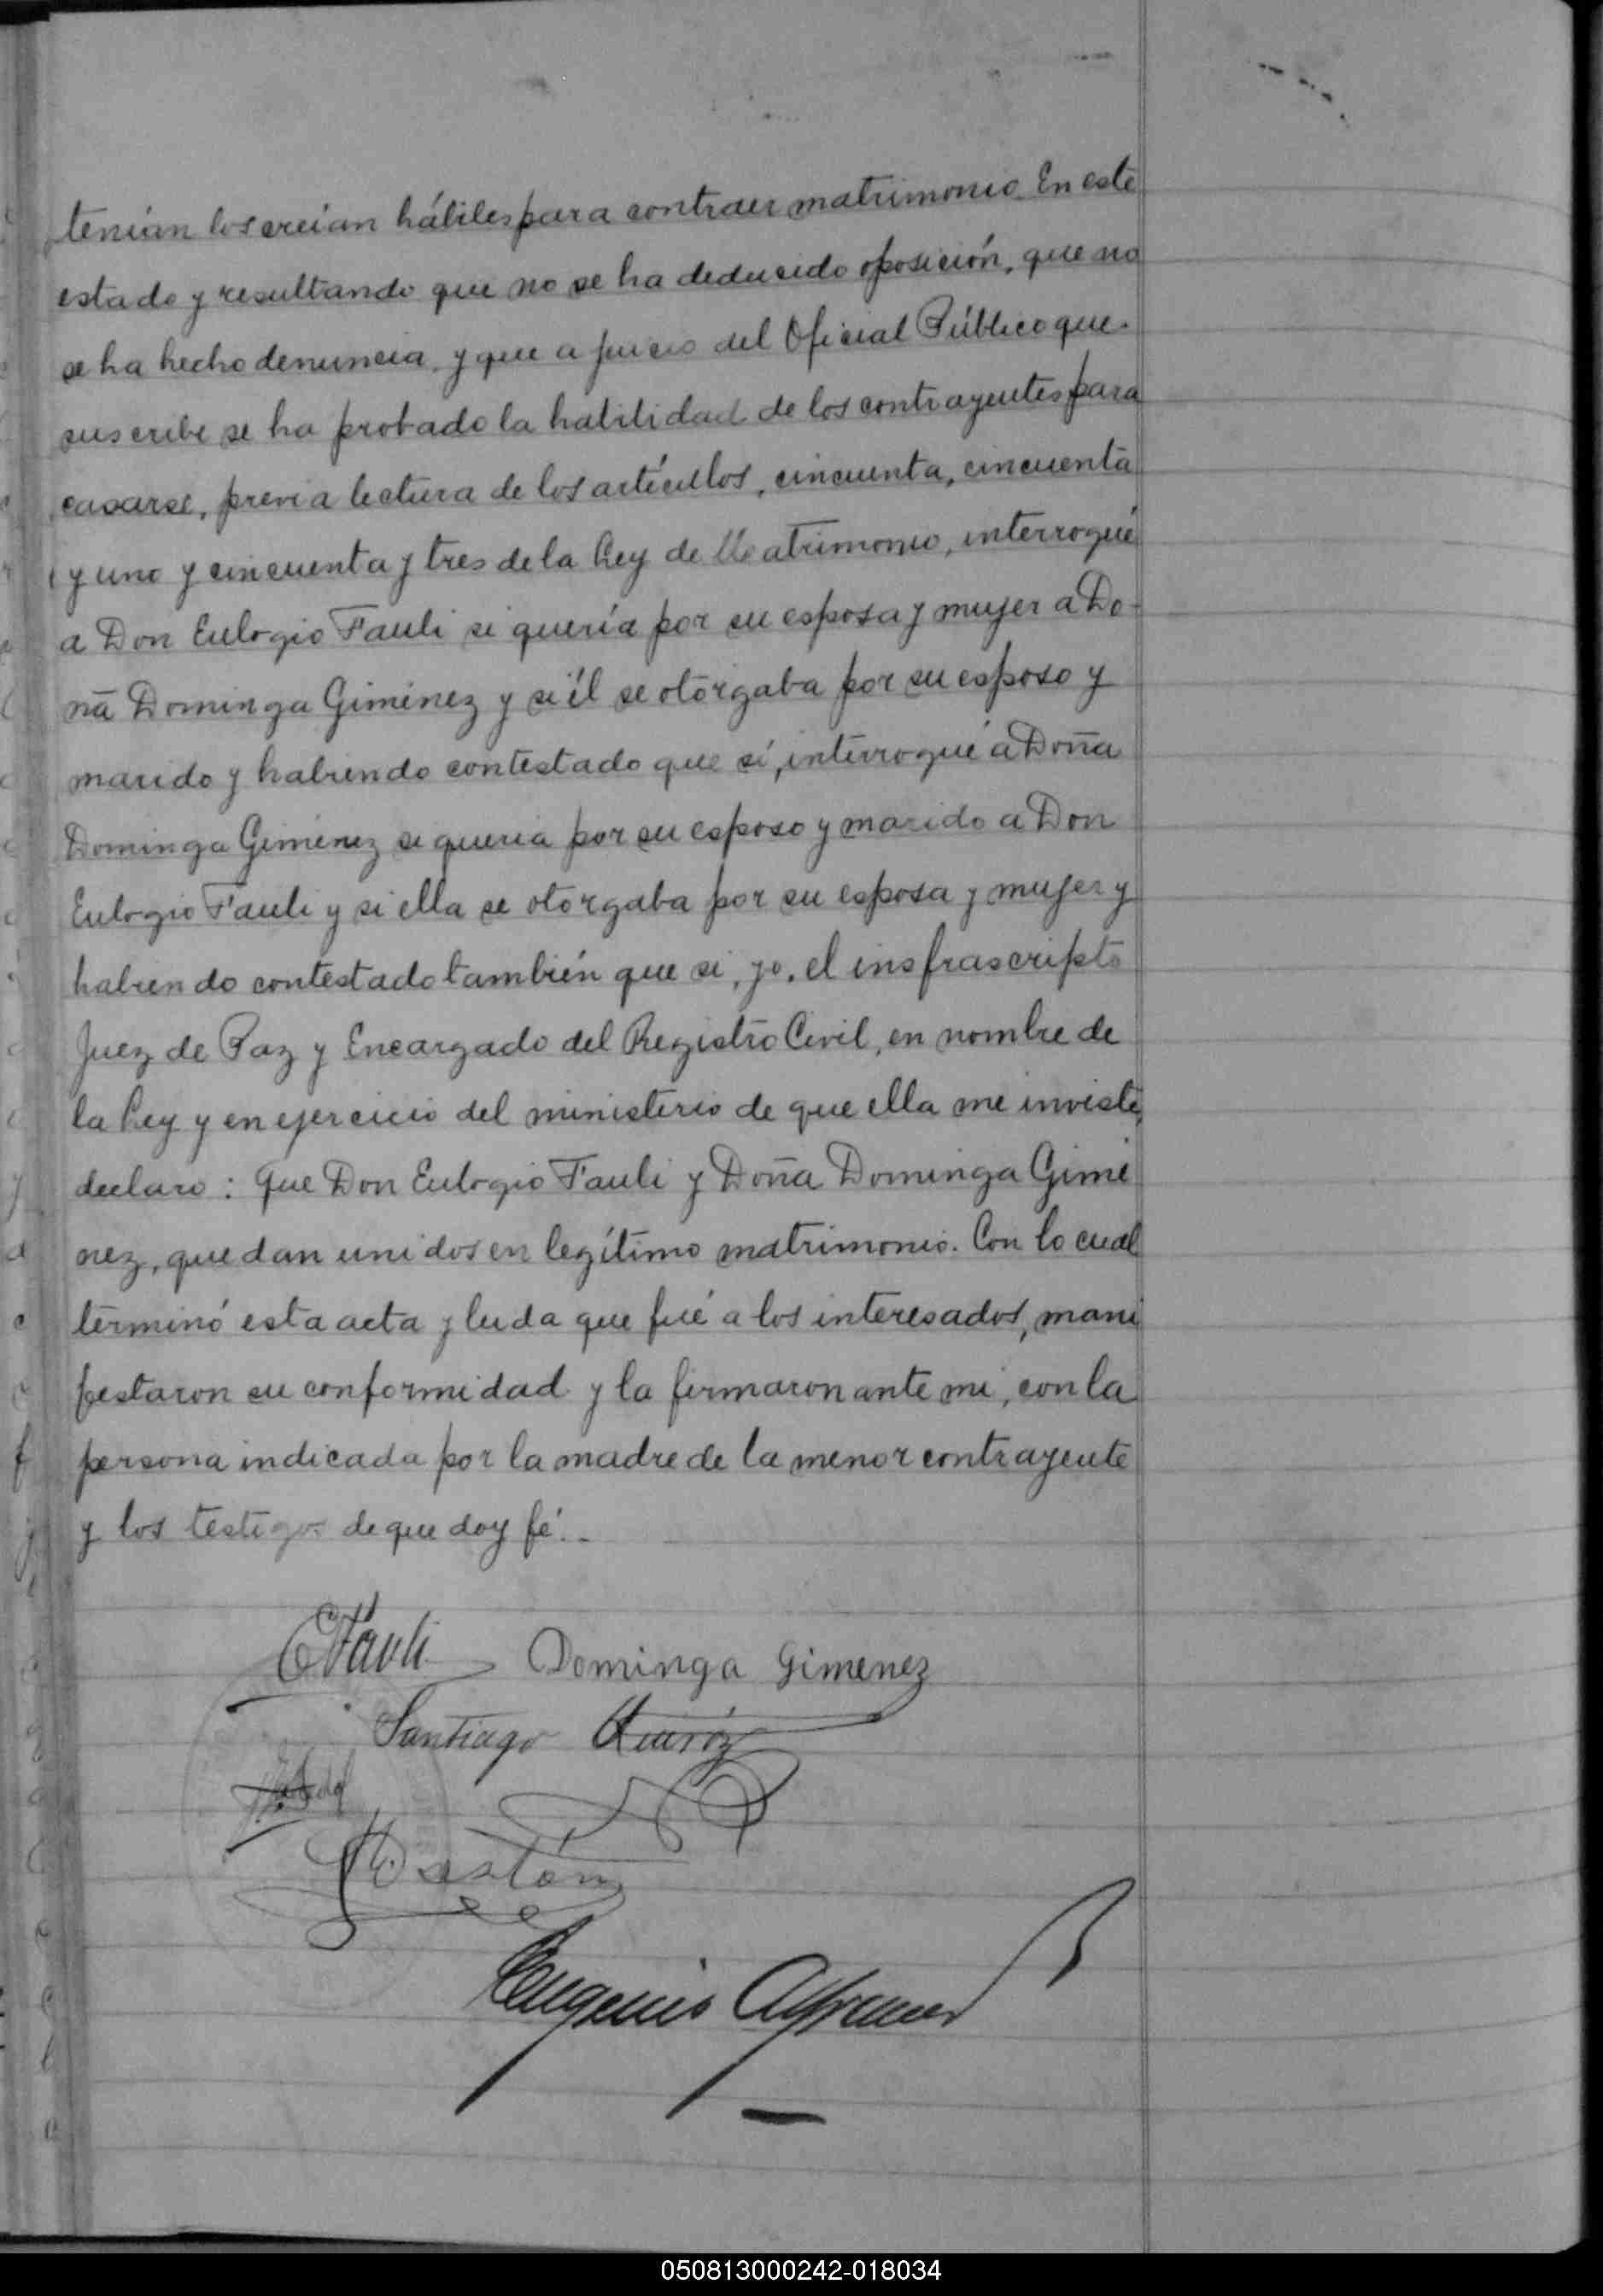 tenían los creían hábiles para contraer matrimonio. En este
estado y resultando que no se ha deducido oposición, que no
se ha hecho denuncia, y que a juicio del Oficial Público que
suscribe se ha probado la habilidad de los contrayentes para
casarse, previa lectura de los artículos, cincuenta, cincuenta
y uno y cincuenta y tres de la Ley de Matrimonio, interrogué
a Don Eulogio Fauli si quería por su esposa y mujer a Do-
ña Dominga Giménez y si él se otorgaba por su esposo y
marido y habiendo contestado que sí, interrogué a Doña
Dominga Giménez si quería por su esposo y marido a Don
Eulogio Fauli y si ella se otorgaba por su esposa y mujer y
habiendo contestado también que si, yo, el insfrascripto
Juez de Paz y Encargado del Registro Civil, en nombre de
la Ley y en ejercicio del ministerio de que ella me inviste,
declaro: que Don Eulogio Fauli y Doña Dominga Gimé
nez, quedan unidos en legítimo matrimonio. Con lo cual
terminó esta acta y leida que fué a los interesados, mani
festaron su conformidad y la firmaron ante mi, con la
persona indicada por la madre de la menor contrayente
y los testigos de que doy fé.-
E Fauli Dominga Gimenez
Santiago Quiróz
Eugenio
050813000242-018034